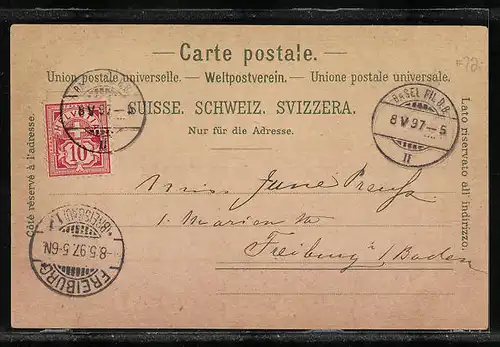 Carte postale.
Union postale universelle. — Weltpostverein. — Unione postale universale.
SUISSE. SCHWEIZ. SVIZZERA.
Nur für die Adresse.
Côté réservé à l'adresse.
Lato riservato all' indirizzo.
10
BASEL FIL. B.B.
8 V 97 — 5
II
BASEL FIL. B.B.
8 V 97 — 5
II
Miss June Preuss
1. Marien
Freiburg i/Baden
(BREISGAU) 1
8.5.97. 5-6N.
FREIBURG